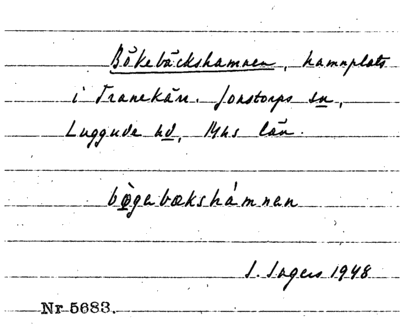 Bökebäckshamnen, hamnplats
i Tranekärr. Jonstorps sn,
Luggude hd, Mhs län.
bøgebækshámnen
S. Ingers 1948
Nr 5683.